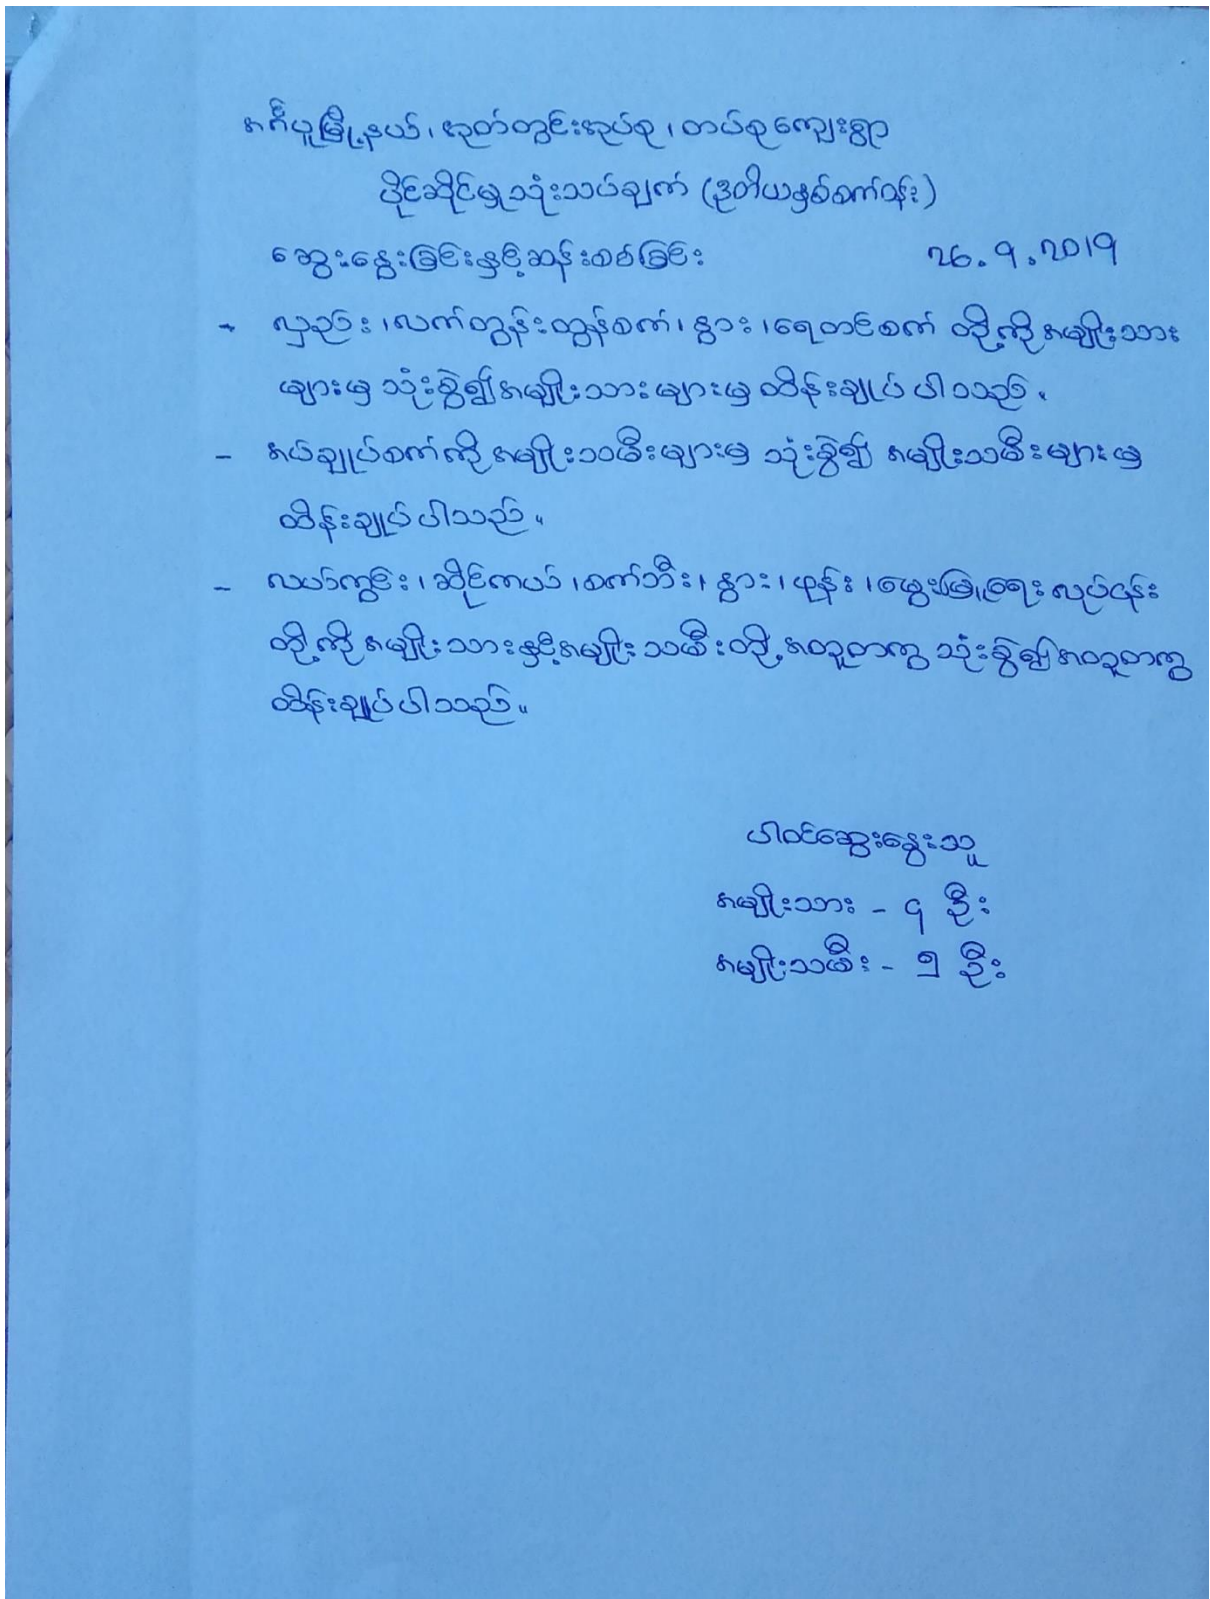 အင်္ဂပူမြို့နယ်၊ အုတ်တွင်းအုပ်စု၊ တပ်စုကျေးရွာ
ပိုင်ဆိုင်မှုသုံးသပ်ချက် (ဒုတိယနှစ်စက်ဝန်း)
ဆွေးနွေးခြင်းနှင့်ဆန်းစစ်ခြင်း 26.9.2019
- လှည်း၊ လက်တွန်းထွန်စက်၊ နွား၊ ရေတင်စက် တို့ကိုအမျိုးသား
များမှ သုံးစွဲ၍အမျိုးသားများမှ ထိန်းချုပ်ပါသည်။
- အပ်ချုပ်စက်ကိုအမျိုးသမီးများမှ သုံးစွဲ၍ အမျိုးသမီးများမှ
ထိန်းချုပ်ပါသည်။
- လယ်ကွင်း၊ ဆိုင်ကယ်၊ စက်ဘီး၊ နွား၊ ဖုန်း၊ မွေးမြူရေးလုပ်ငန်း
တို့ကိုအမျိုးသားနှင့်အမျိုးသမီးတို့အတူတကွ သုံးစွဲ၍အတူတကွ
ထိန်းချုပ်ပါသည်။
ပါဝင်ဆွေးနွေးသူ
အမျိုးသား - ၄ ဦး
အမျိုးသမီး - ၅ ဦး